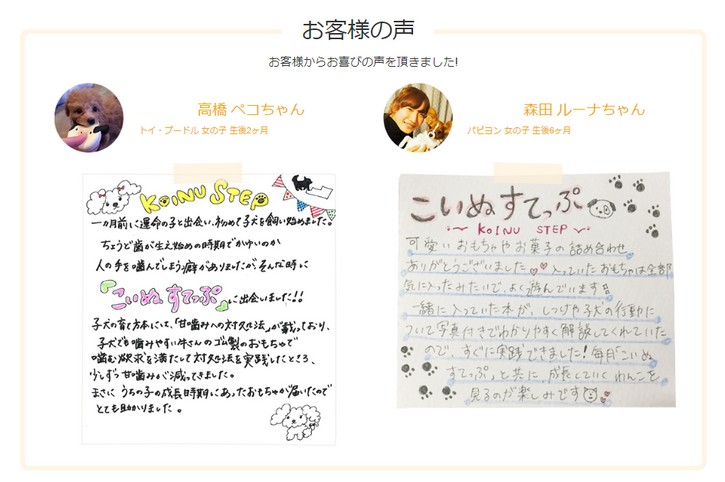 お客様の声
お客様からお喜びの声を頂きました!
高橋 ペコちゃん
トイ・プードル 女の子 生後2ヶ月
KOINU STEP
一ヵ月前に運命の子と出会い、初めて子犬を飼い始めました。
ちょうど歯が生え始めの時期でかゆいのか
人の手を噛んでしまう癖がありましたが、そんな時に
『こいぬすてっぷ』に出会いました!!
子犬の育て方本には、「甘噛みへの対処法」が載っており、
子犬でも噛みやすい牛さんのゴム製のおもちゃで
噛む欲求を満たして対処法を実践したところ、
少しずつ甘噛みが減ってきました。
まさに、うちの子の成長時期にあったおもちゃが届いたので
とても助かりました。
森田 ルーナちゃん
パピヨン 女の子 生後6ヶ月
こいぬすてっぷ
～KOINU STEP～
可愛いおもちゃやお菓子の詰め合わせ
ありがとうございました♡♡入っていたおもちゃは全部
気に入ったみたいで、よく遊んでいます
一緒に入っていた本が、しつけや子犬の行動に
ついて写真付きでわかりやすく解説してくれていた
ので、すぐに実践できました!毎月「こいぬ
すてっぷ」と共に、成長していくわんこを
見るのが楽しみです